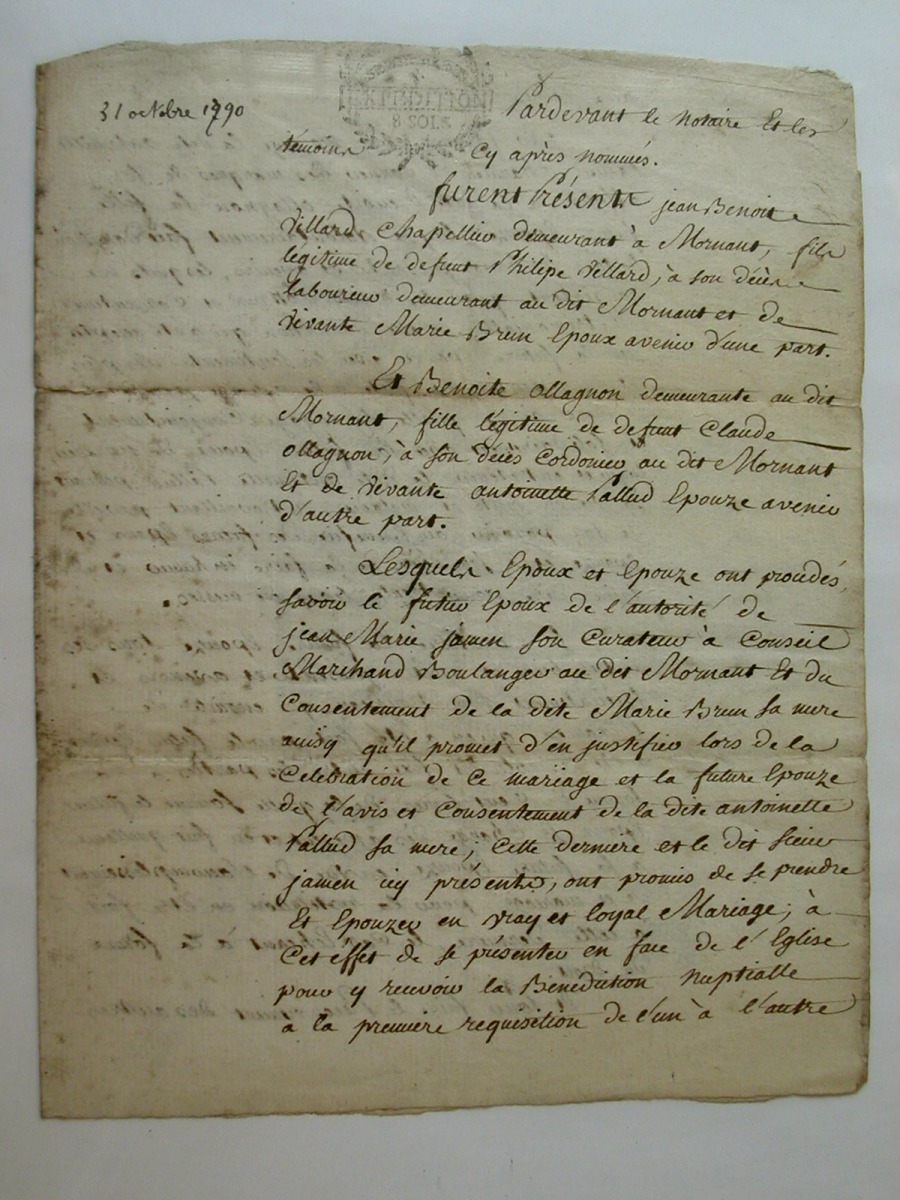 31 octobre 1790
8 SOLS
Pardevant le notaire Et les
témoins Cy après nommés.
furent Présents jean Benoit
Villard Chapellier demeurant à Mornant, fils
légitime de defunt Philipe Villard, à son décès
laboureur demeurant au dit Mornant et de
vivante Marie Brun Epoux avenir d'une part.
Et Benoite ollagnon demeurante au dit
Mornant, fille légitime de defunt Claude
ollagnon, à son décès Cordonier au dit Mornant
Et de vivante antoinette Pallud Epouze avenir
d'autre part.
Lesquels Epoux et Epouze ont procedés,
savoir le futur Epoux de l'autorité de
jean Marie jamen son Curateur à Conseil
Marchand Boulanger au dit Mornant Et du
Consentement de la dite Marie Brun sa mere
ainsy qu'il promet d'en justifier lors de la
Celebration de Ce mariage et la future Epouze
de l'avis et Consentement de la dite antoinette
Pallud sa mere; Cette derniere et le dit sieur
jamen icy présents, ont promis de se prendre
Et Epouzer en vray et loyal Mariage; à
Cet éffet de se présenter en face de l'Eglise
pour y recevoir la Bénédiction Nuptialle
à la premiere requisition de l'un à l'autre